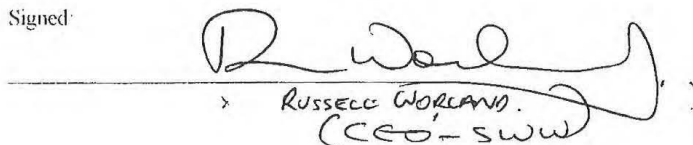 Signed
RUSSELL WORLAND.
(CEO - SWW)